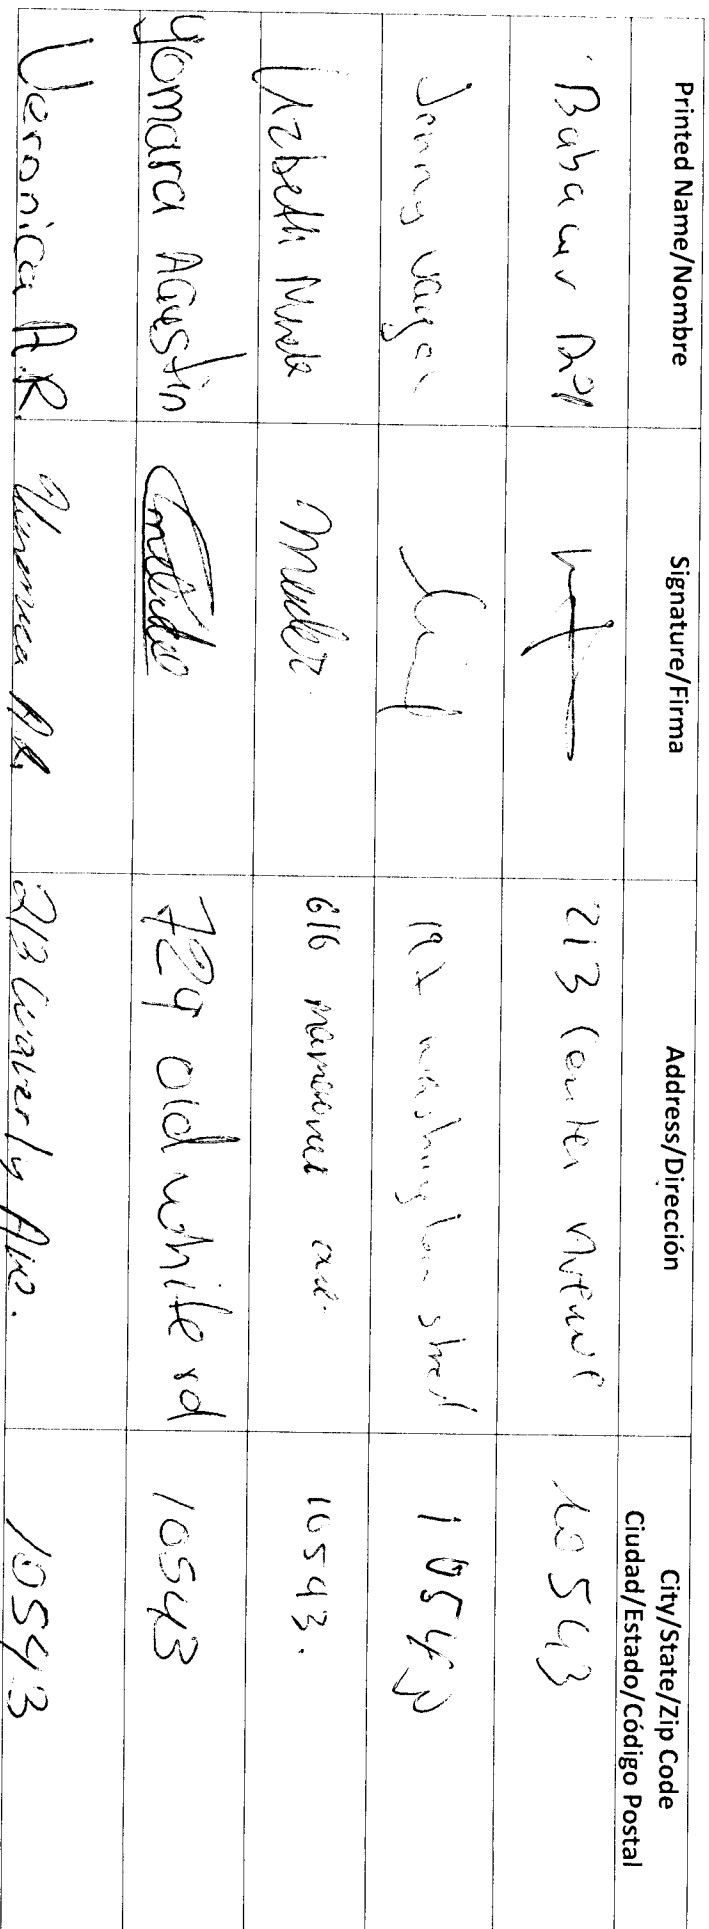 Printed Name/Nombre Signature/Firma Address/Dirección City/State/Zip Code
Ciudad/Estado/Código Postal
213 Center Avenue 10543
Jenny Vargas 197 washington street 10543
Lizbeth Mendez 616 mamaroneck ave. 10543.
Yomara Agustin 729 old white rd 10543
Veronica A.R. Veronica A.R. 213 Waverly Ave. 10543